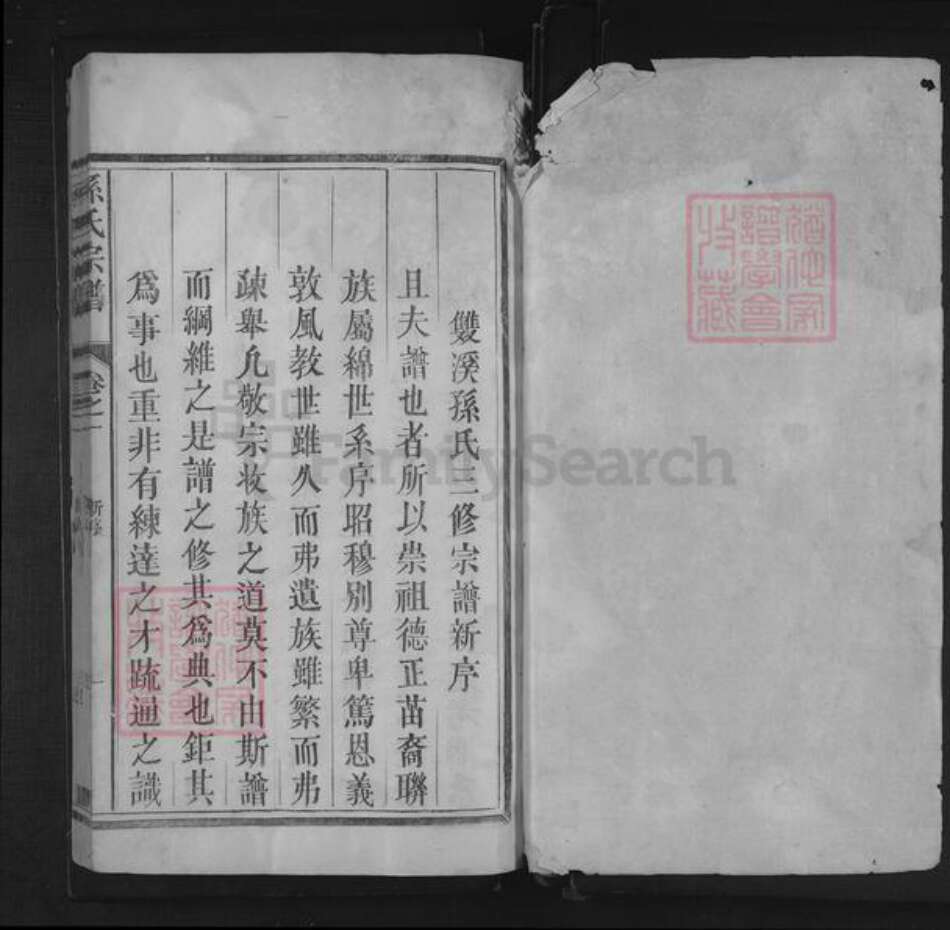 雙溪孫氏三修宗譜新序
且夫譜也者所以崇祖德正苗裔聯
族屬綿世系序昭穆別尊卑篤恩義
敦風教世雖久而弗遺族雖繁而弗
疎舉凢敬宗收族之道莫不由斯譜
而綱維之是譜之修其為典也鉅其
為事也重非有練達之才䟽通之識
孫氏宗譜
卷之一
新序
一
譜學會
FamilySearch